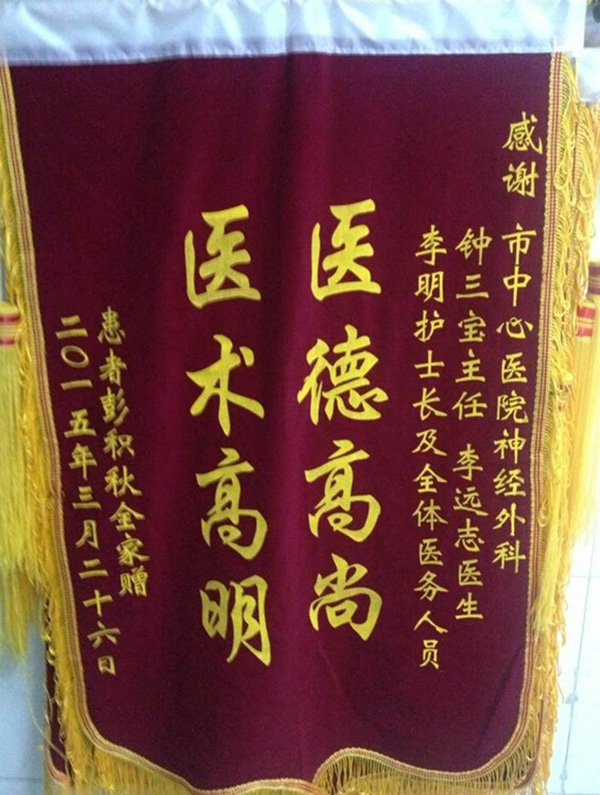 感谢 市中心医院神经外科
钟三宝主任 李远志医生
李明护士长及全体医务人员
医德高尚
医术高明
患者彭积秋全家赠
二〇一五年三月二十六日